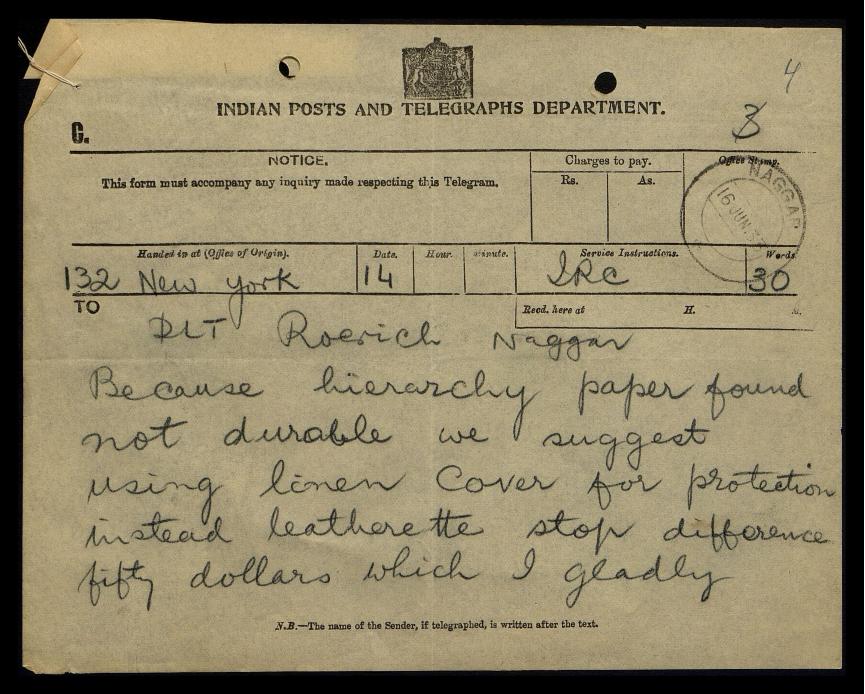 4
INDIAN POSTS AND TELEGRAPHS DEPARTMENT.
3
C.
NOTICE.
This form must accompany any inquiry made respecting this Telegram.
Charges to pay.
Rs. As.
Office Stamp.
NAGGAR
16 JUN.
Handed in at (Office of Origin). Date. Hour. Minute. Service Instructions. Words.
132 New York 14 IRC 30
TO
Recd. here at H. M.
DLT Roerich Naggar
Because hierarchy paper found
not durable we suggest
using linen Cover for protection
instead leatherette stop difference
fifty dollars which I gladly
N.B.—The name of the Sender, if telegraphed, is written after the text.